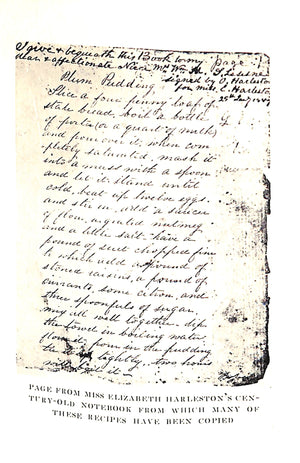 I give & bequeath this Book to my
dear & affectionate Niece Mrs Wm H.
signed by E. Harleston
for Miss E. Harleston
Plum Pudding
Slice a four penny loaf of
stale bread, boil a bottle
of porter (or a quart of milk)
and pour over it; when com-
pletely saturated, mash it
into a mass with a spoon
and let it stand until
cold, beat up twelve eggs
and stir in, add a saucer
of flour, a grated nutmeg
and a little salt. have a
pound of suet chopped fine
to which add a pound of
stoned raisins, a pound of
currants, some citron, and
three spoonfuls of sugar.
mix all well together. dip
the towel in boiling water,
flour it, pour in the pudding
tie it up tightly. two hours
will it
PAGE FROM MISS ELIZABETH HARLESTON'S CEN-
TURY-OLD NOTEBOOK FROM WHICH MANY OF
THESE RECIPES HAVE BEEN COPIED